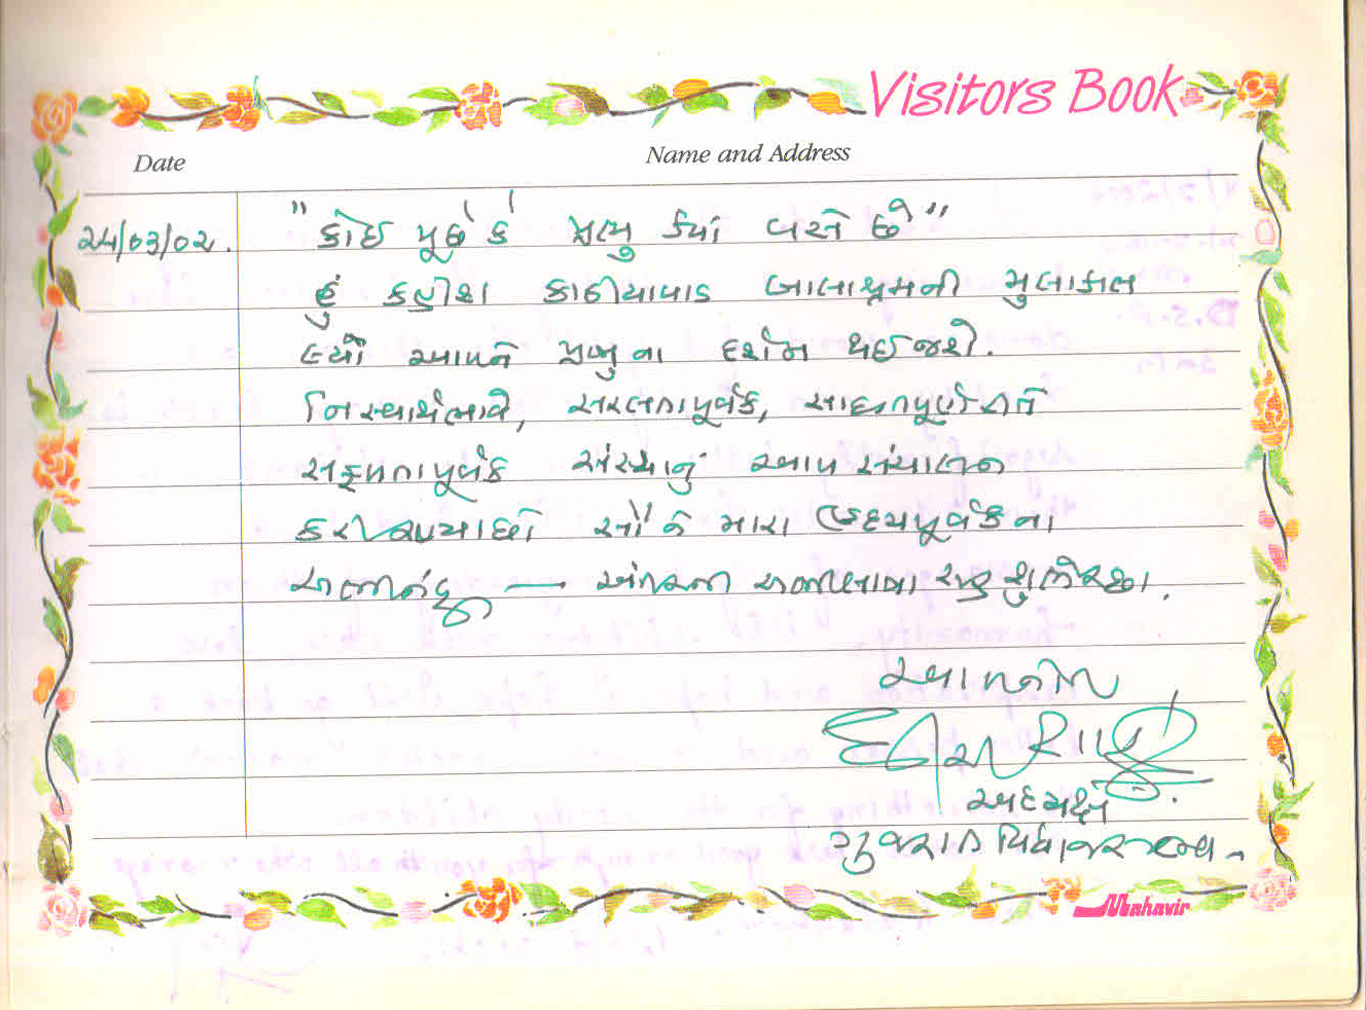 Visitors Book
Date
Name and Address
૨૫/૦૩/૦૨.
"કોઇ પૂછે કે પ્રભુ ક્યાં વસે છે"
હું કહીશ કાઠીયાવાડ બાલાશ્રમની મુલાકાત
લ્યો આપને પ્રભુના દર્શન થઈ જશે.
નિસ્વાર્થભાવે, સરલતાપૂર્વક, સાદગીપૂર્ણ રીતે
સફળતાપૂર્વક સંસ્થાનું આપ સંચાલન
કરી રહ્યા છો સૌ ને મારા હૃદયપૂર્વકના
અભિનંદન — અંતરની
આપનો
અધ્યક્ષ
ગુજરાત વિધાનસભા
Mahavir